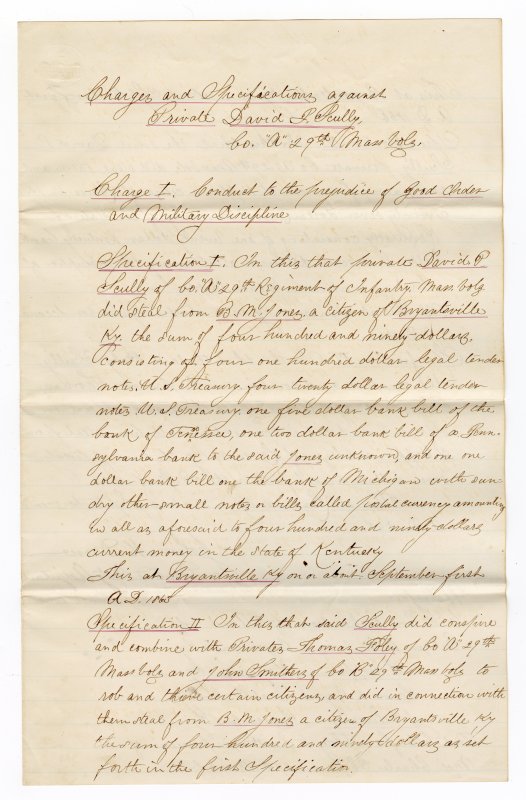 Charges and Specifications against
Private David P. Scully
Co. "A" 29th Mass Vols.
Charge I. Conduct to the prejudice of Good Order
and Military Discipline
Specification I. In this that private David P
Scully of Co. "A" 29th Regiment of Infantry, Mass Vols
did steal from B. M. Jones, a citizen of Bryantsville
Ky. the sum of four hundred and ninety dollars,
consisting of four one hundred dollar legal tender
notes, U.S. Treasury, four twenty dollar legal tender
notes U.S Treasury one five dollar bank bill of the
bank of Tennesse, one two dollar bank bill of a Penn-
sylvania bank to the said Jones unknown, and one one
dollar bank bill one the bank of Michigan with sun-
dry other small notes or bills called postal currency amounting
in all as aforesaid to four hundred and ninety dollars
current money in the State of Kentucky
This at Bryantsville Ky on or about September first
A.D. 1863
Specification II In this that said Scully did conspire
and combine with Privates Thomas Foley of Co "A" 29th
Mass Vols and John Smithers of Co "B" 29th Mass Vols to
rob and thieve certain citizens, and did in connection with
them steal from B. M Jones a citizen of Bryantsville Ky
the sum of four hundred and ninety dollars as set
forth in the first Specification.